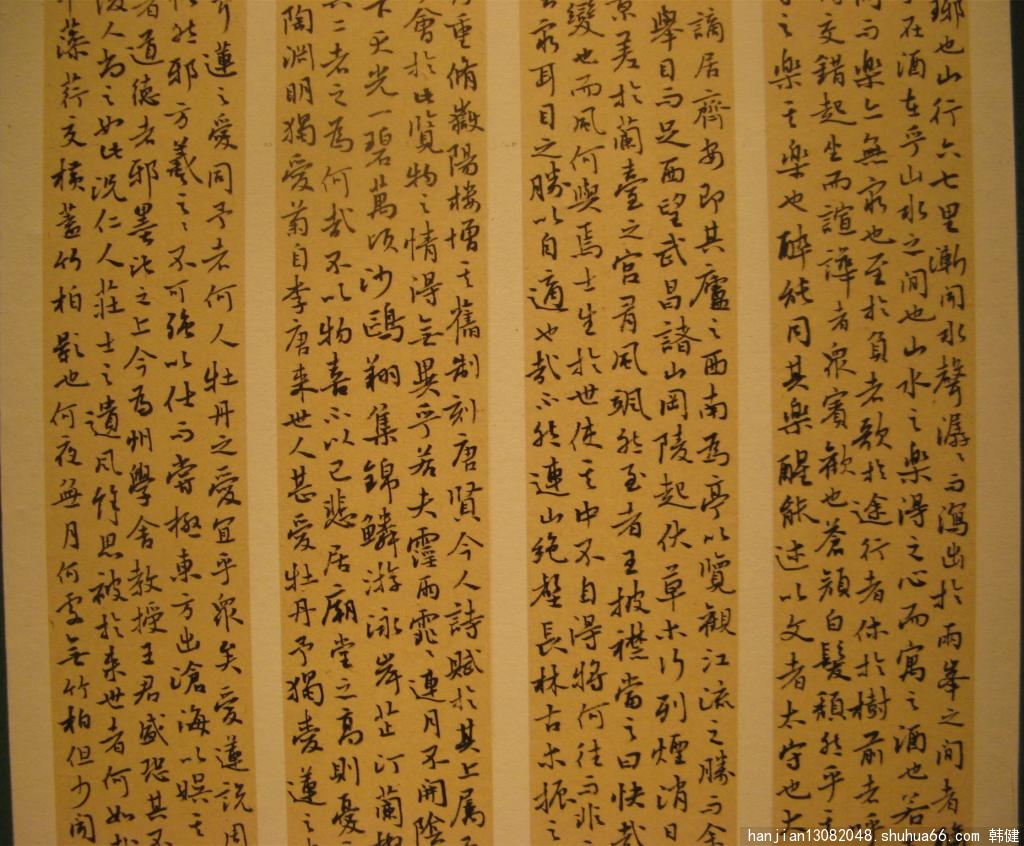 瑯也山行六七里漸聞水聲潺〻而瀉出於兩峯之間者
在酒在乎山水之間也山水之樂得之心而寓之酒也若
而樂亦無窮也至於負者歌於途行者休於樹前者呼
交錯起坐而諠譁者衆賓歡也蒼顏白髮頹然乎其
之樂其樂也醉能同其樂醒能述以文者太守也太
謫居齊安即其廬之西南為亭以覽觀江流之勝而余
舉目而足西望武昌諸山岡陵起伏草木行列煙消日
景差於蘭臺之宮有風颯然至者王披襟當之曰快哉
變也而風何與焉士生於世使其中不自得將何往而非
窮耳目之勝以自適也哉不然連山絶壑長林古木振之
重脩嶽陽樓增其舊制刻唐賢今人詩賦於其上屬
會於此覽物之情得無異乎若夫霪雨霏〻連月不開陰
下天光一碧萬頃沙鷗翔集錦鱗游泳岸芷汀蘭
二者之為何哉不以物喜不以己悲居廟堂之高則憂
陶淵明獨愛菊自李唐来世人甚愛牡丹予獨愛蓮之
蓮之愛同予者何人牡丹之愛宜乎衆矣愛蓮説周
然邪方羲之之不可強以仕而嘗極東方出滄海以娱其
道德者邪墨池之上今為州學舍教授王君盛恐其不
後人尚之如此況仁人莊士之遺風餘思被於来世者何如哉
藻荇交橫蓋竹柏影也何夜無月何處無竹柏但少閑
hanjian13082048.shuhua66.com 韩健